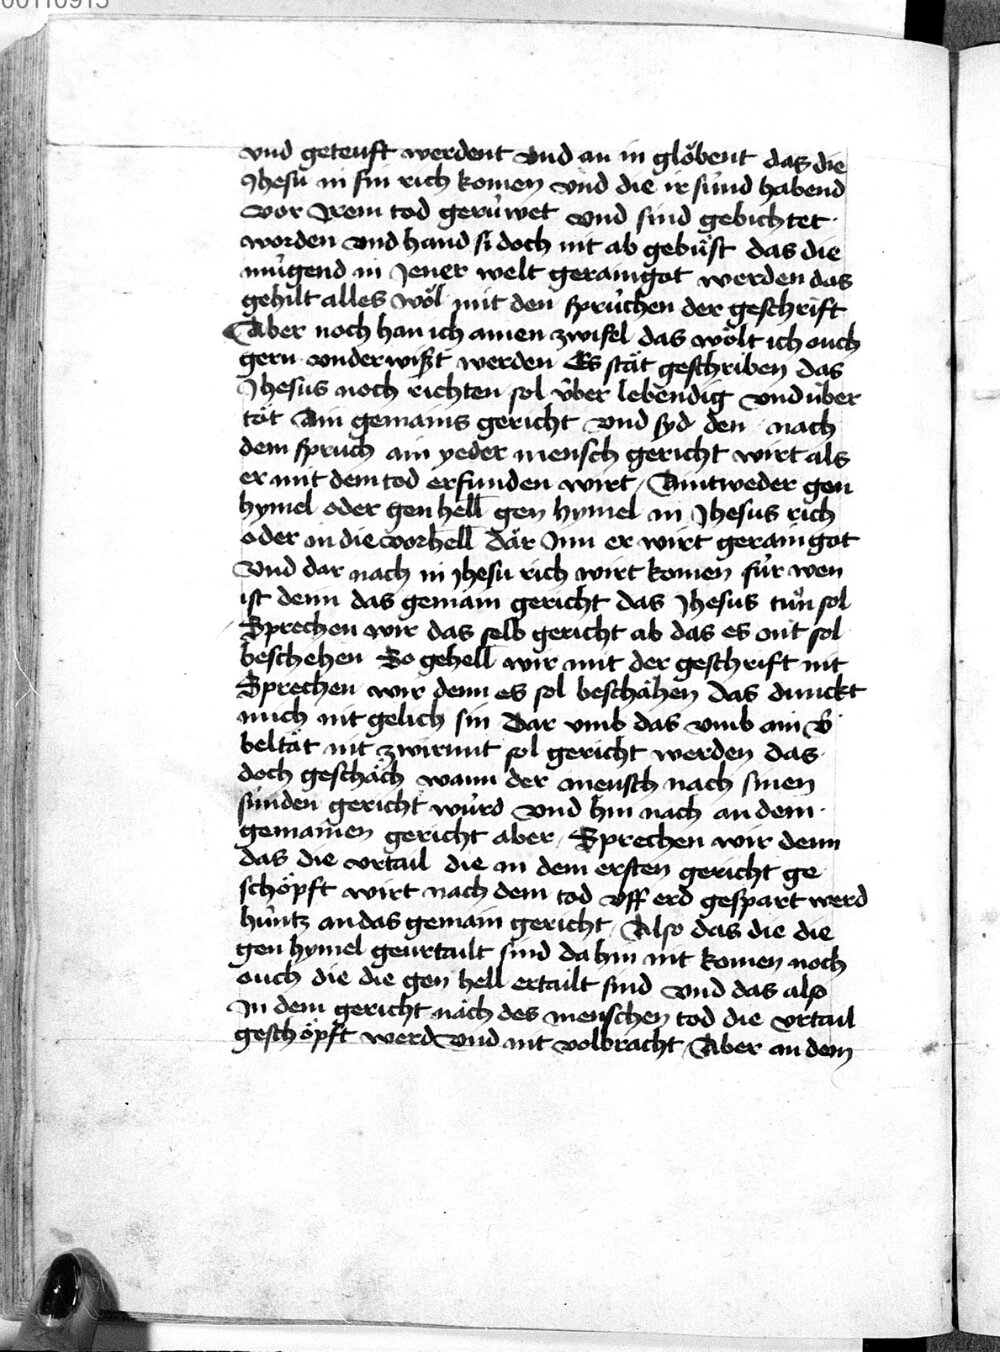 00110915
vnd geteuft werdent vnd an in glöbent das die
Jhesu in sin rich komen vnd die ir sünd habend
vor Irem tod gerüwet vnd sind gebichtet
worden vnd hand si doch nit ab gebüst das die
mügend in Jener welt gerainigot werden das
gehilt alles wöl mit den sprüchen der geschrift
Aber noch han ich ainen zwifel das wölt ich ouch
gern vnderwißt werden Es stät geschriben das
Jhesus noch richten sol über lebendig vnd über
töt Ain gemains gericht vnd syd den nach
dem spruch ain yeder mensch gericht wirt als
er mit dem tod erfunden wirt / Aintweder gen
hymel oder gen hell gen hymel in Jhesus rich
oder in die vorhell där Inn er wirt gerainigot
vnd dar nach in Jhesu rich wirt komen für wen
ist denn das gemain gericht das Jhesus tůn sol
Sprechen wir das selb gericht ab das es nit sol
beschehen So gehell wir mit der geschrift nit
Sprechen wir denn es sol beschähen das dunckt
mich nit gelich sin Dar vmb das vmb ain ü
beltät nit zwirunt sol gericht werden das
doch geschäch wann der mensch nach sinen
sünden gericht würd vnd hin nach an dem
gemainen gericht aber / Sprechen wir denn
das die vrtail die in dem ersten gericht ge
schöpft wirt nach dem tod vff erd gespart werd
hüntz an das gemain gericht / Also das die die
gen hymel geurtailt sind da hin nit komen noch
ouch die die gen hell ertailt sind vnd das also
In dem gericht näch des menschen tod die vrtail
geschöpft werd vnd nit volbracht / Aber an dem